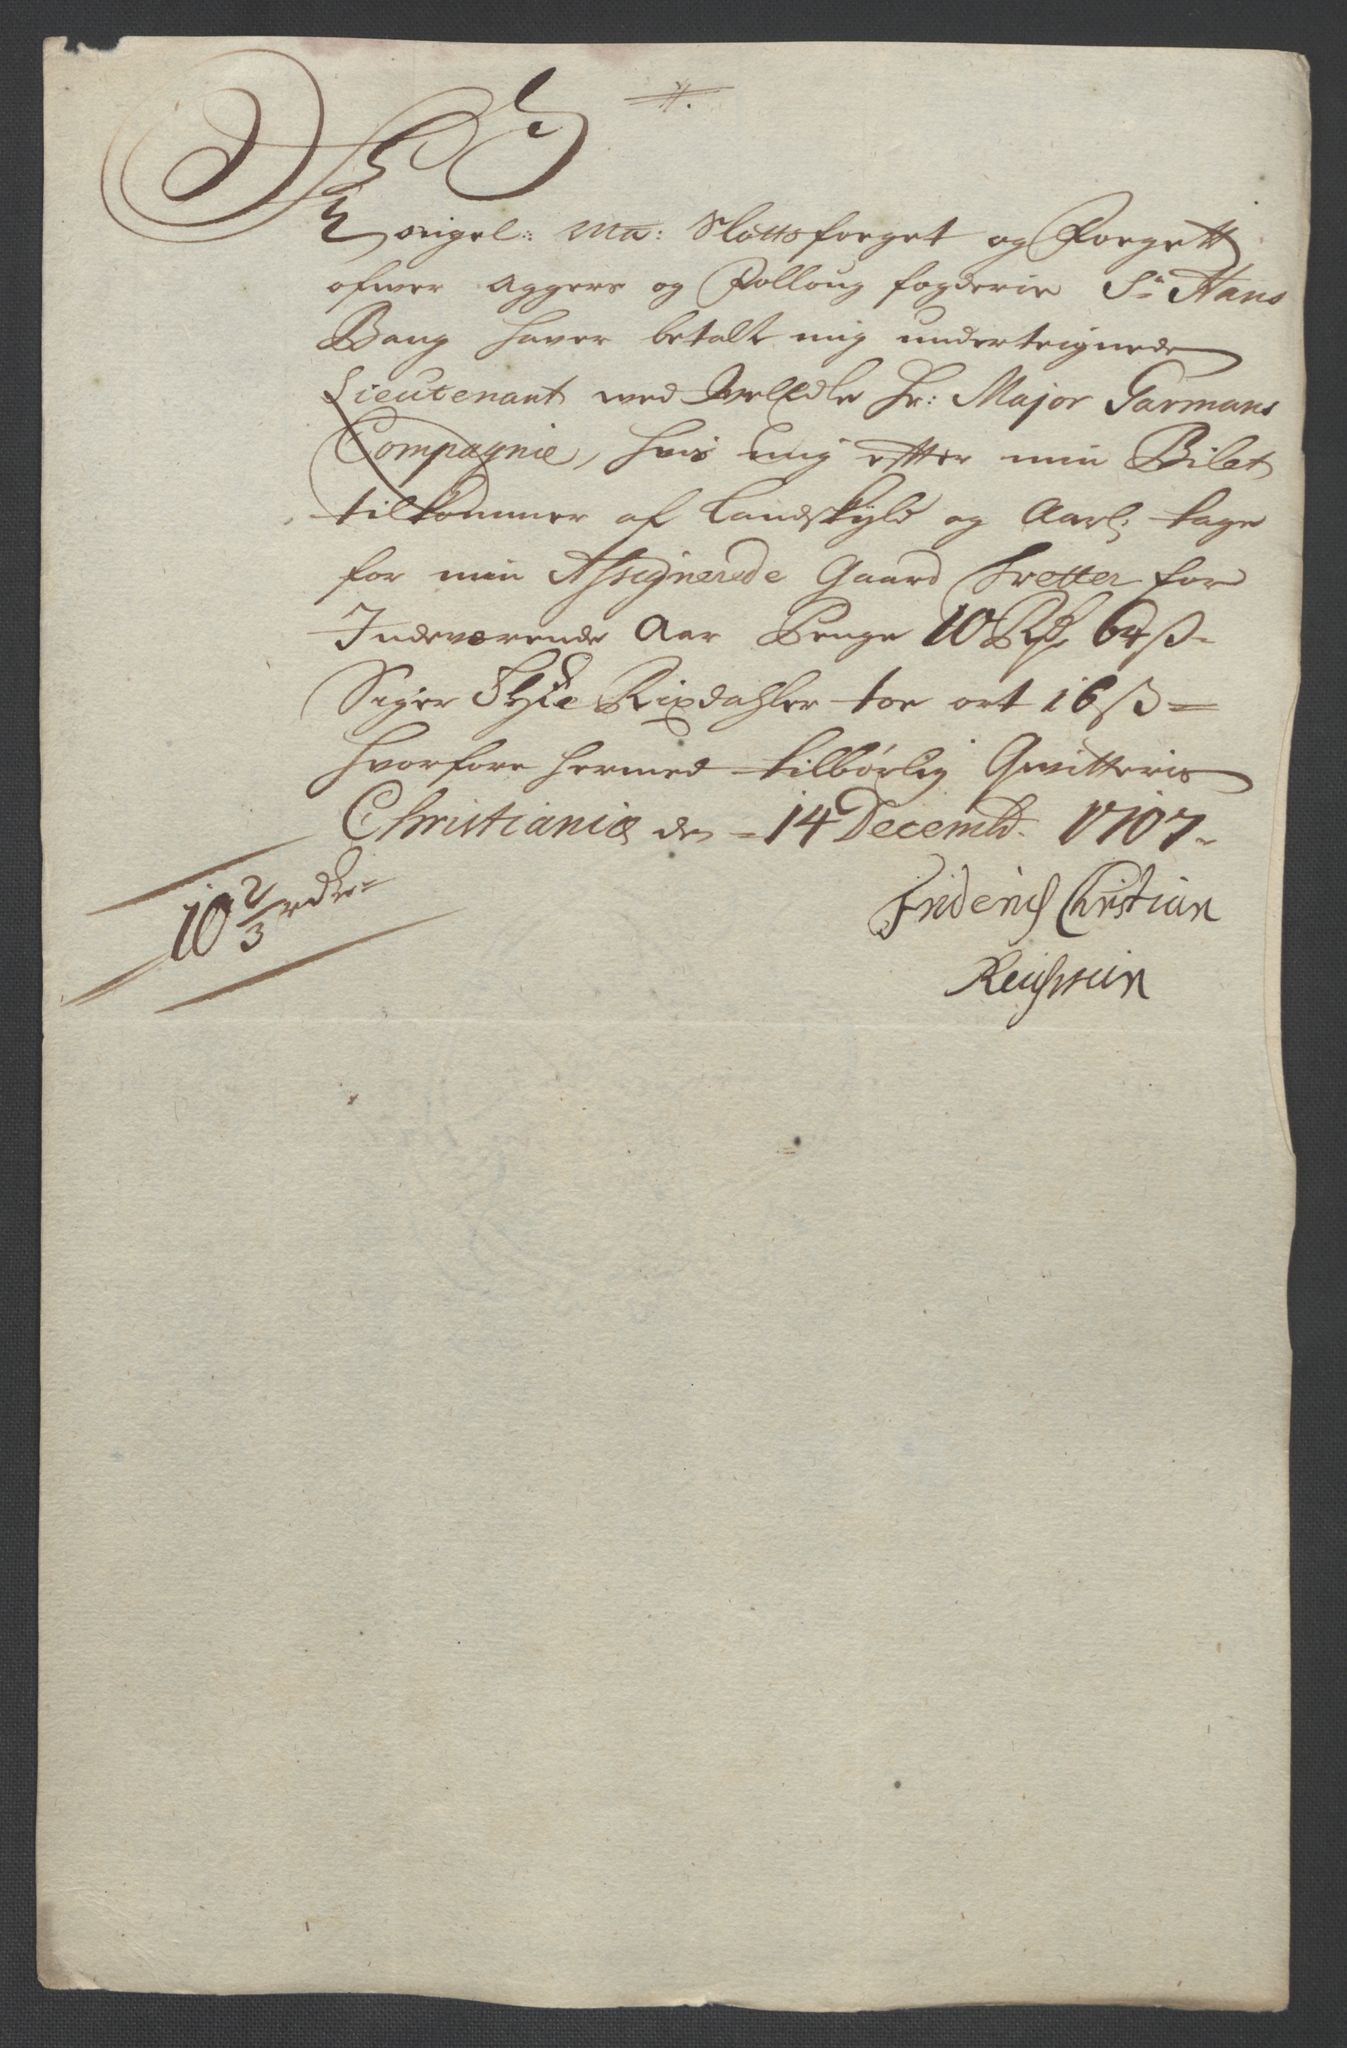 Kongel: Ma: Slottsfoeget og Foegett
ofwer Aggers og Folloug fogderie Sr Hans
Bang hawer betalt mig underteignede
Lieutenant wed Welædle Hr: Major Garmans
Compagnie, hvis mig effter min Bilet
tilkommer af Landskyld og Aarl: tage
for min Assignerede Gaard for
Indeværende Aar Penge 10 Rdr 64 ß
Siger Rixdahler toe ort 16 ß
hvorfore hermed tilbørlig Qvitteris
Christianiæ den 14 Decembr. 1707
10 2/3 rdr
Friderich Christian